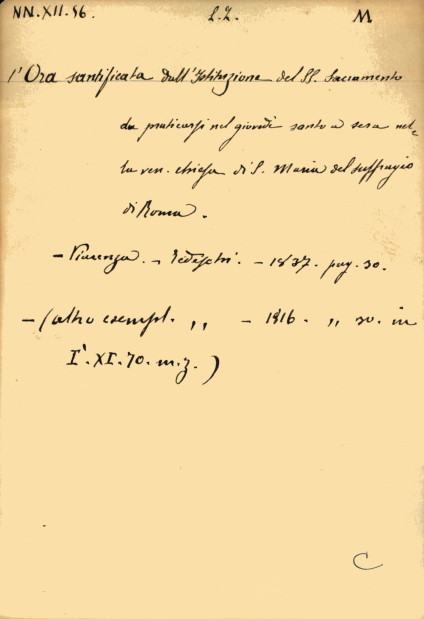 NN.XII.56. L.Z. M
l'Ora santificata dall'Istituzione del SS. Sacramento
da praticarsi nel giovedì santo a sera nel-
la ven. chiesa di S. Maria del suffragio
di Roma.
- Piacenza. - Tedeschi. - 1837. pag. 30.
- (altro esempl. ,, - 1816. ,, 30. in
XI.70. m.z.)
C